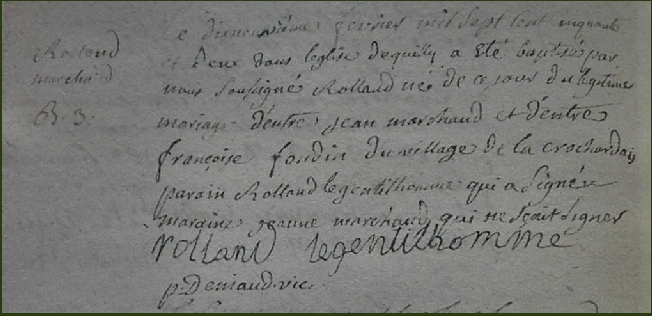 Rolland
marchand
B. 3.
e dixneuvième fevrier mil sept cent cinquante
et deux dans leglise dequilly a eté baptisé par
nous soussigné Rolland né de ce jour du legitime
mariage d'entre jean marchand et d'entre
françoise fondin du village de la crochardais
parain Rolland legentilhomme qui a signé
maraine jeanne marchand qui ne sçait signer
rolland legentilhomme
p. Deniaud vic.